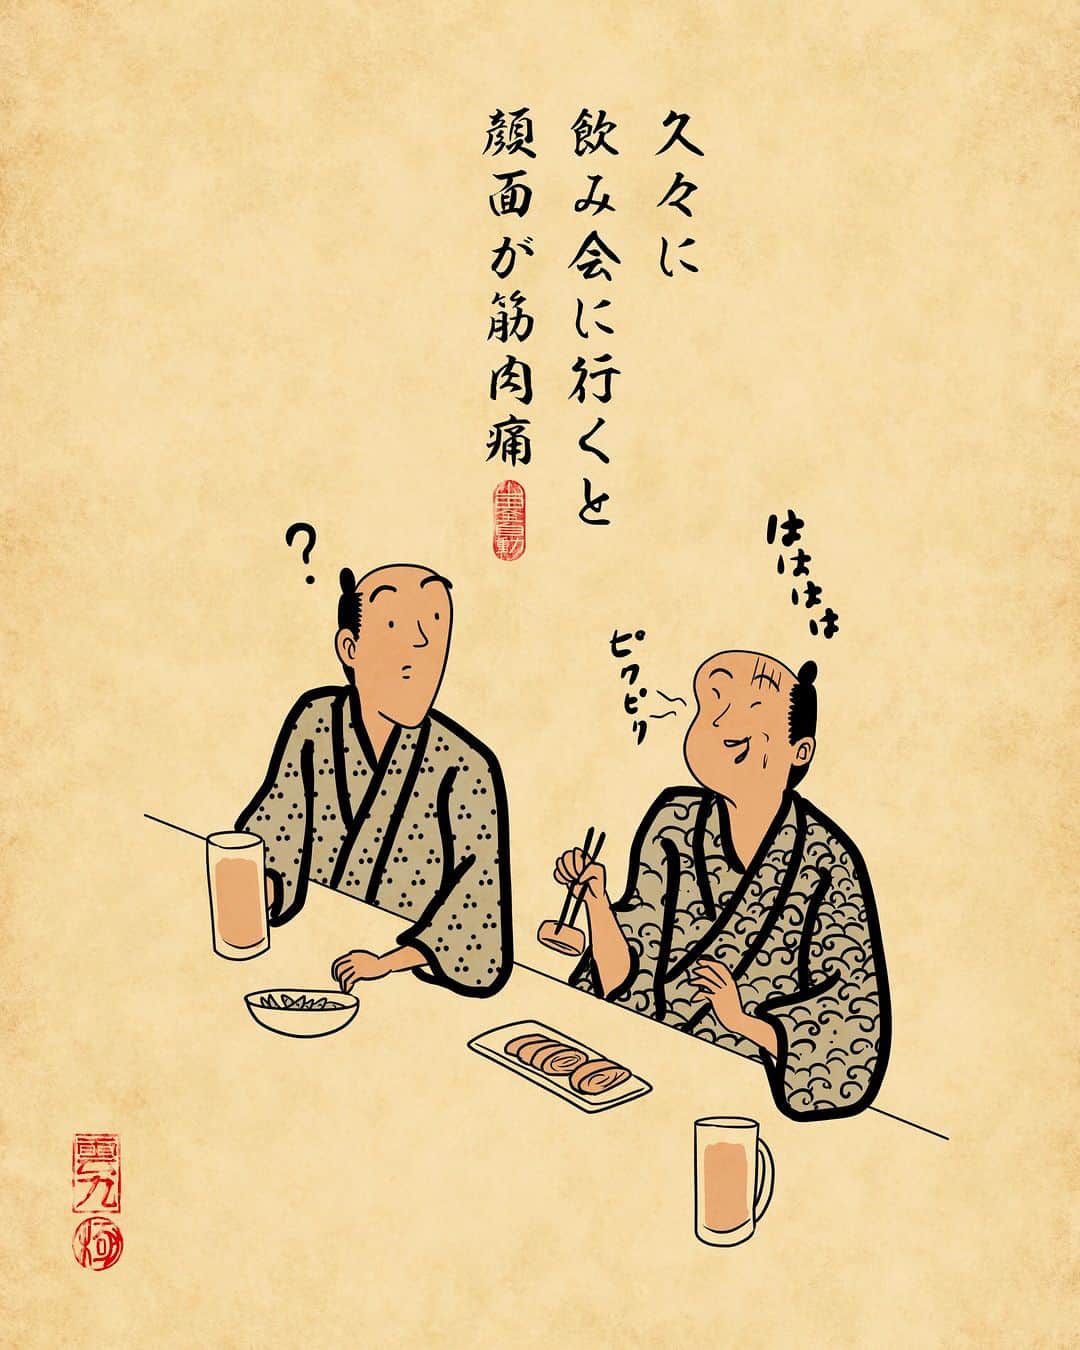 久々に
飲み会に行くと
顔面が筋肉痛
?
はははは
ピクピク